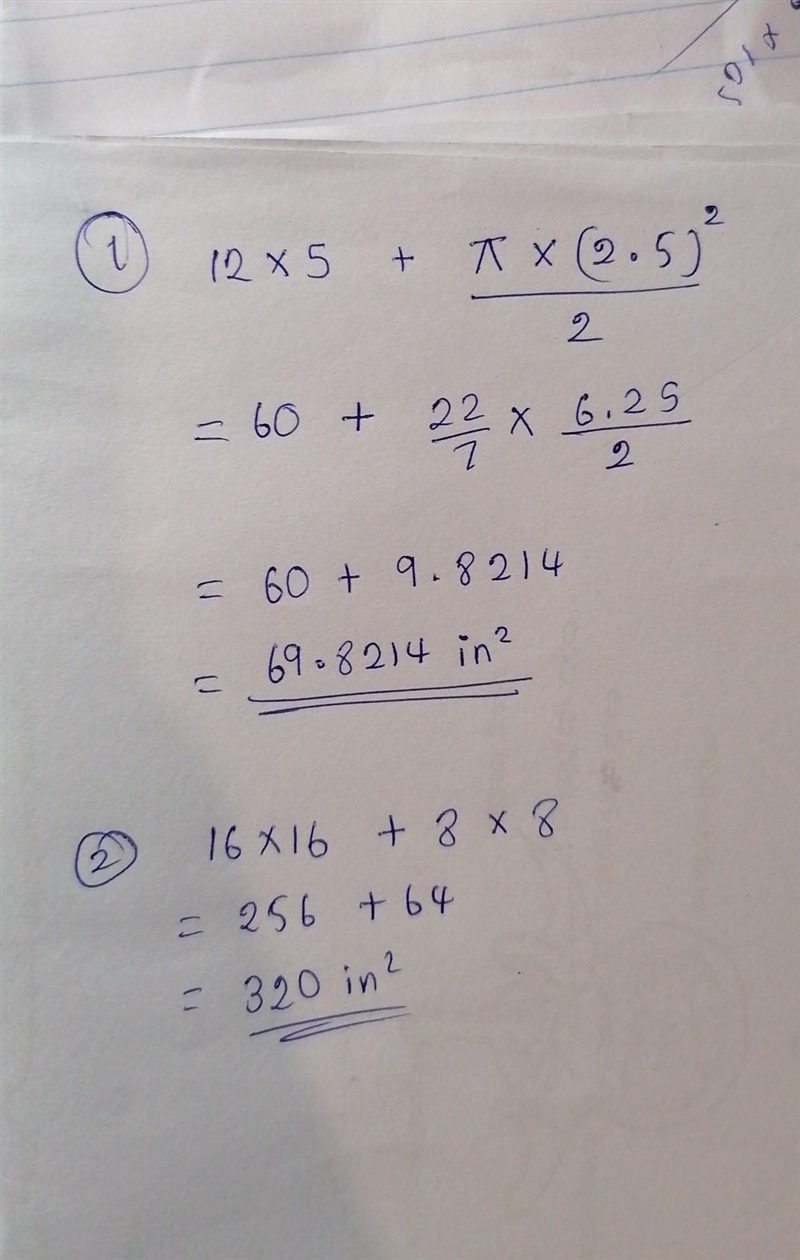 ① 12 × 5 + π × (2.5)² / 2
= 60 + 22/7 × 6.25/2
= 60 + 9.8214
= 69.8214 in²
② 16 × 16 + 8 × 8
= 256 + 64
= 320 in²